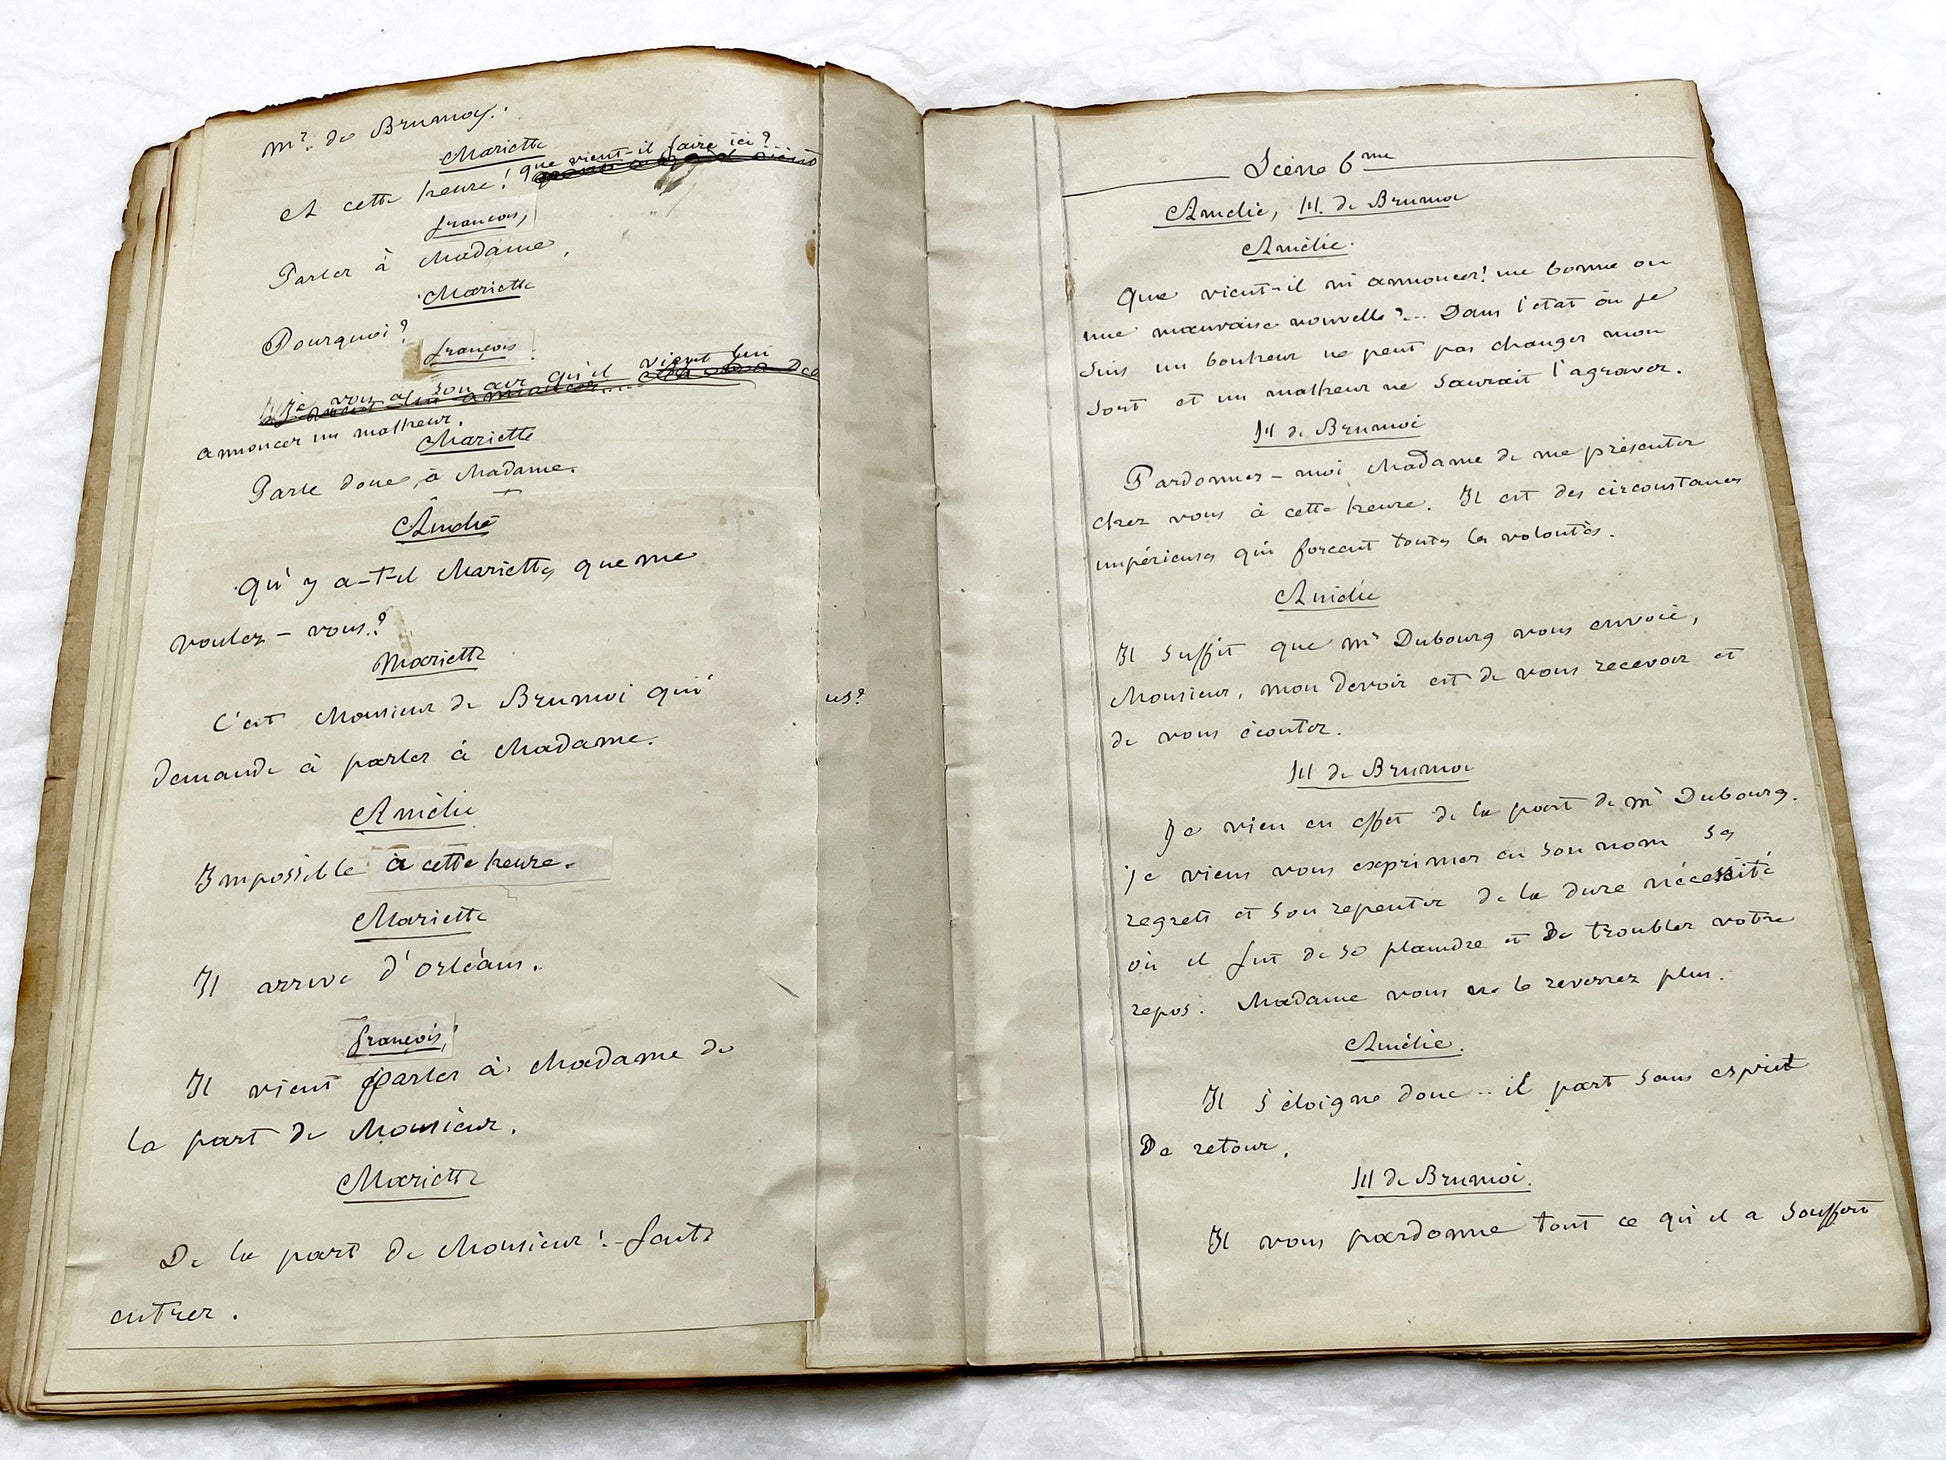 Mr. de Brunoy.
Mariette
A cette heure! que vient-il faire ici?
françois,
Parler à Madame,
Mariette
Pourquoi?
françois
je vois à son air qu'il vient lui
annoncer un malheur.
Mariette
Parle donc, à Madame.
Amélie
Qu'y a-t-il Mariette, que me
voulez-vous?
Mariette
C'est Monsieur de Brunoi qui
demande à parler à Madame.
Amélie
Impossible à cette heure.
Mariette
Il arrive d'Orléans.
françois,
Il vient parler à Madame de
la part de Monsieur.
Mariette
De la part de Monsieur! - faite
entrer.
us?
Scène 6me
Amélie, M. de Brunoi
Amélie.
Que vient-il m'annoncer! une bonne ou
une mauvaise nouvelle?... Dans l'état où je
suis un bonheur ne peut pas changer mon
sort et un malheur ne saurait l'agraver.
M de Brunoi
Pardonnez-moi Madame de me présenter
chez vous à cette heure. Il est des circonstances
impérieuses qui forcent toutes les volontés.
Amélie
Il suffit que Mr Dubourg vous envoie,
Monsieur, mon devoir est de vous recevoir et
de vous écouter.
M de Brunoi
Je vien en effet de la part de Mr Dubourg.
je viens vous exprimer en son nom ses
regrets et son repentir de la dure nécessité
où il fut de se plaindre et de troubler votre
repos. Madame vous ne le reverrez plus.
Amélie.
Il s'éloigne donc.. il part sans esprit
De retour.
M de Brunoi.
Il vous pardonne tout ce qu'il a souffert